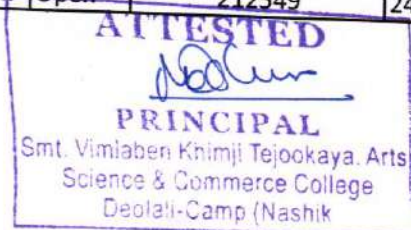 Open 212349 24
ATTESTED
PRINCIPAL
Smt. Vimlaben Khimji Tejookaya. Arts
Science & Commerce College
Deolali-Camp (Nashik